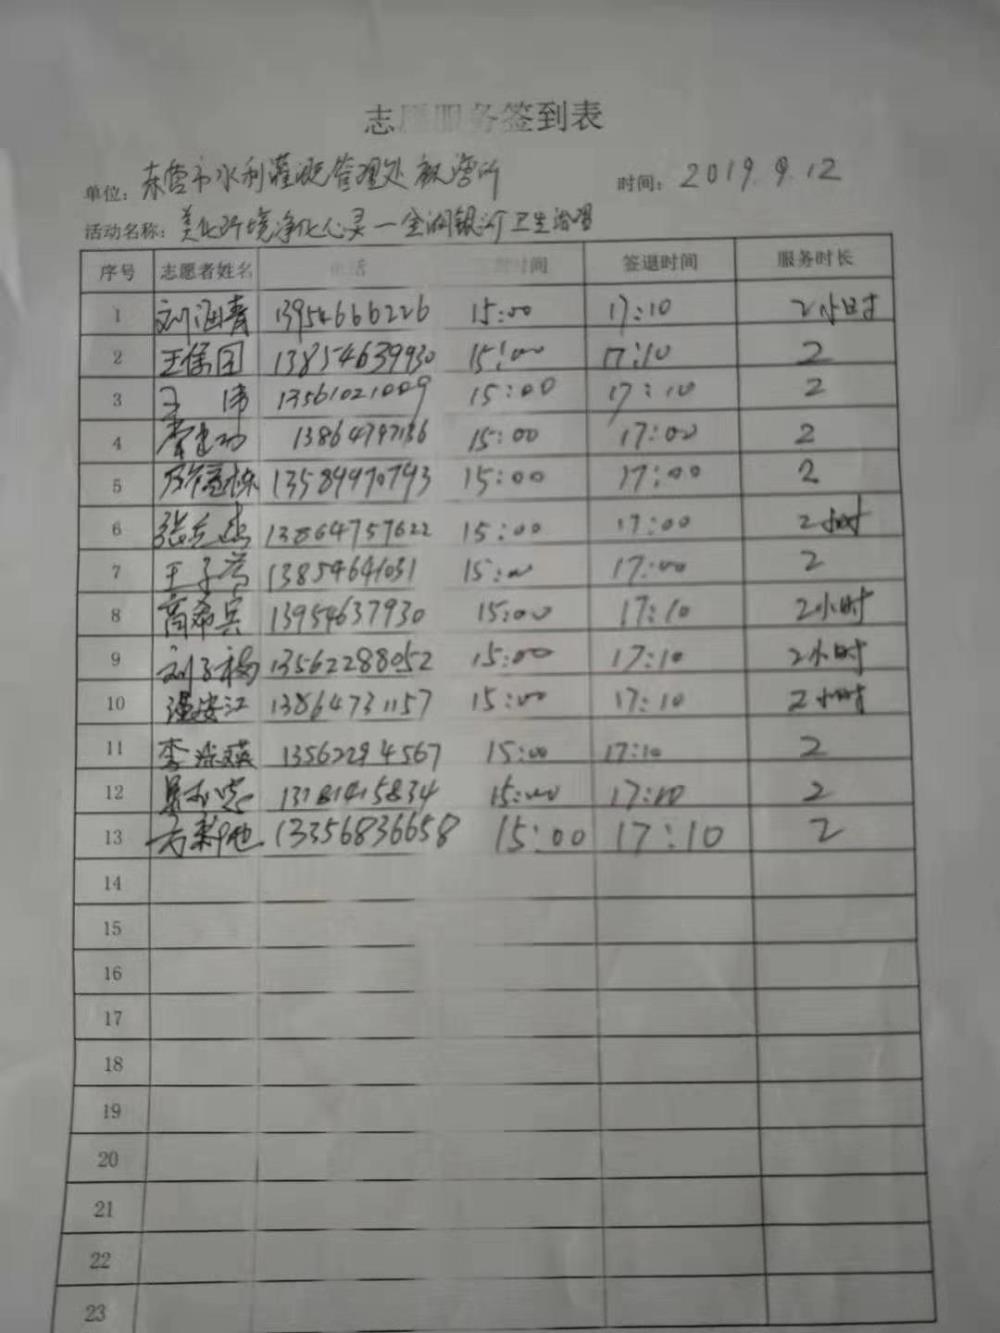 志愿服务签到表
单位: 东营市水利灌溉管理处 所 时间: 2019.9.12
活动名称: 美化环境净化心灵一 卫生治理
序号 志愿者姓名 电话 时间 签退时间 服务时长
1 刘海青 13954666226 15:00 17:10 2小时
2 王保国 13854639930 15:00 17:10 2
3 王 伟 13561021009 15:00 17:10 2
4 13864797136 15:00 17:00 2
5 13589970793 15:00 17:00 2
6 张 13864757622 15:00 17:00 2小时
7 王子 13854641031 15:00 17:00 2
8 商希兵 13954637930 15:00 17:10 2小时
9 刘子杨 13562288052 15:00 17:10 2小时
10 江 13864731157 15:00 17:10 2小时
11 李 13562294567 15:00 17:10 2
12 15:00 17:10 2
13 13356836658 15:00 17:10 2
14
15
16
17
18
19
20
21
22
23